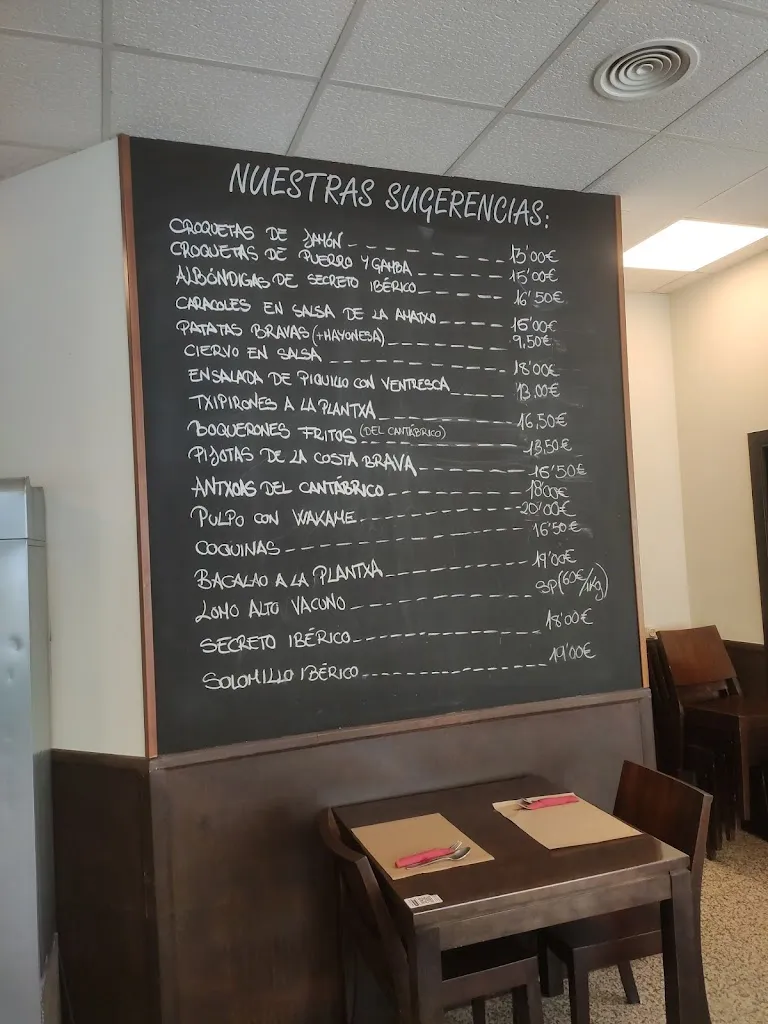 NUESTRAS SUGERENCIAS:
CROQUETAS DE JAMÓN 13'00€
CROQUETAS DE PUERRO Y GAMBA 15'00€
ALBÓNDIGAS DE SECRETO IBÉRICO 16'50€
CARACOLES EN SALSA DE LA AMATXO 15'00€
PATATAS BRAVAS (+MAYONESA) 9,50€
CIERVO EN SALSA 18'00€
ENSALADA DE PIQUILLO CON VENTRESCA 13,00€
TXIPIRONES A LA PLANTXA 16,50€
BOQUERONES FRITOS (DEL CANTÁBRICO) 13,50€
PIJOTAS DE LA COSTA BRAVA 16'50€
ANTXOAS DEL CANTÁBRICO 18'00€
PULPO CON WAKAME 20'00€
COQUINAS 16'50€
BACALAO A LA PLANTXA 19'00€
LOMO ALTO VACUNO SP(60€/1Kg)
SECRETO IBÉRICO 18'00€
SOLOMILLO IBÉRICO 19'00€